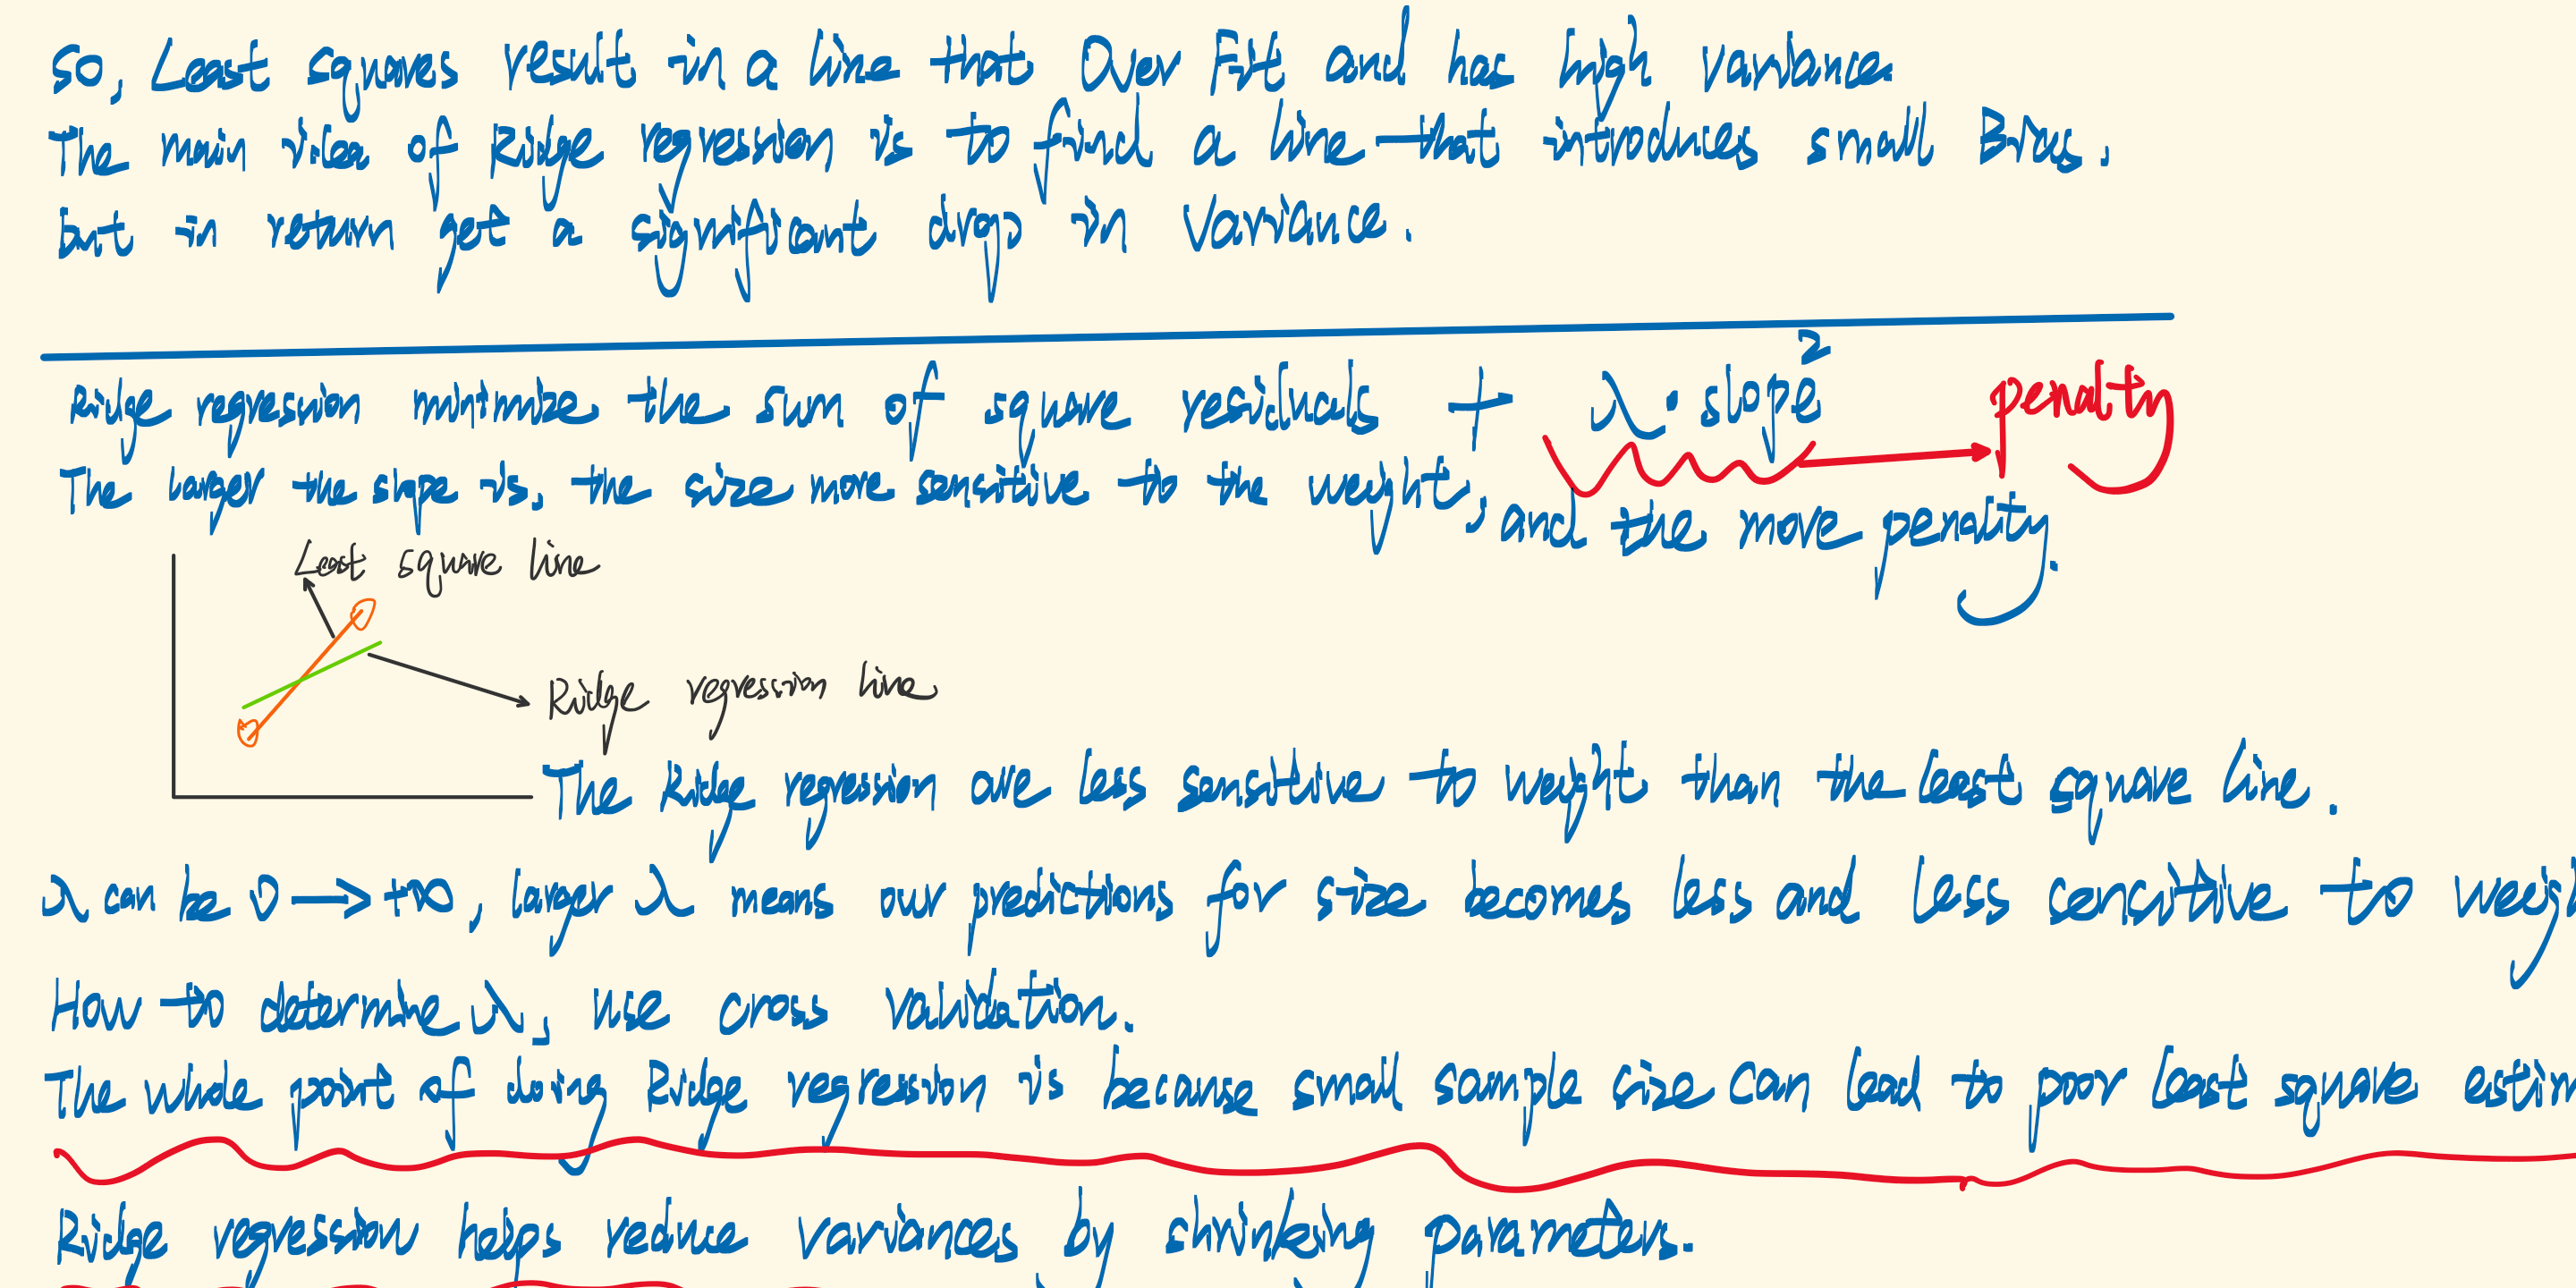 So, Least squares result in a line that Over Fit and has high variance
The main idea of Ridge regression is to find a line that introduces small Bias,
but in return get a significant drop in Variance.
Ridge regression minimize the sum of square residuals + λ · slope² penalty
The larger the slope is, the size more sensitive to the weight,
and the more penality.
Least square line
Ridge regression line
The Ridge regression are less sensitive to weight than the least square line.
λ can be 0 → +∞, larger λ means our predictions for size becomes less and less sensitive to weigh
How to determine λ, use cross validation.
The whole point of doing Ridge regression is because small sample size can lead to poor least square estim
Ridge regression helps reduce variances by shrinking parameters.